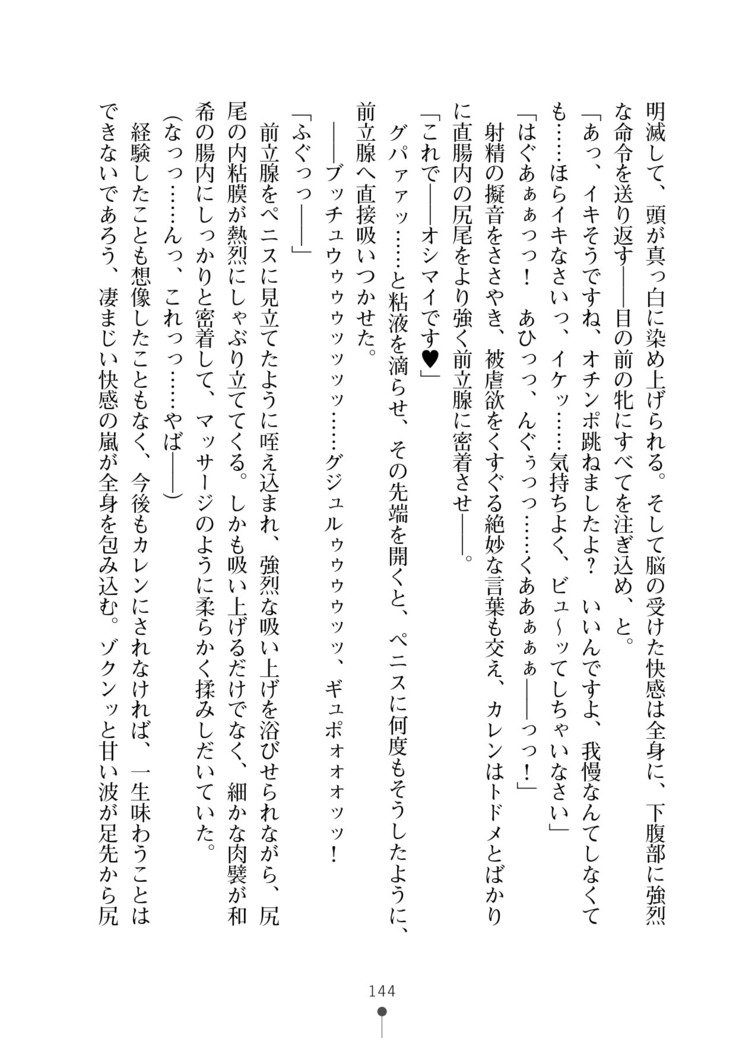 明滅して、頭が真っ白に染め上げられる。そして脳の受けた快感は全身に、下腹部に強烈
な命令を送り返す――目の前の牝にすべてを注ぎ込め、と。
「あっ、イキそうですね、オチンポ跳ねましたよ？　いいんですよ、我慢なんてしなくて
も……ほらイキなさいっ、イケッ……気持ちよく、ビュ～ッてしちゃいなさい」
「はぐあぁぁっっ！　あひっっ、んぐぅっっ……くああぁぁぁ――っっ！」
　射精の擬音をささやき、被虐欲をくすぐる絶妙な言葉も交え、カレンはトドメとばかり
に直腸内の尻尾をより強く前立腺に密着させ――。
「これで――オシマイです♥」
　グパァァッ……と粘液を滴らせ、その先端を開くと、ペニスに何度もそうしたように、
前立腺へ直接吸いつかせた。
　――ブッチュウゥゥゥッッッッ……グジュルゥゥゥゥッッ、ギュポォォォッッ！
「ふぐっっ――」
　前立腺をペニスに見立てたように咥え込まれ、強烈な吸い上げを浴びせられながら、尻
尾の内粘膜が熱烈にしゃぶり立ててくる。しかも吸い上げるだけでなく、細かな肉襞が和
希の腸内にしっかりと密着して、マッサージのように柔らかく揉みしだいていた。
（なっっ……んっ、これっっ……やば――）
　経験したことも想像したこともなく、今後もカレンにされなければ、一生味わうことは
できないであろう、凄まじい快感の嵐が全身を包み込む。ゾクンッと甘い波が足先から尻
144